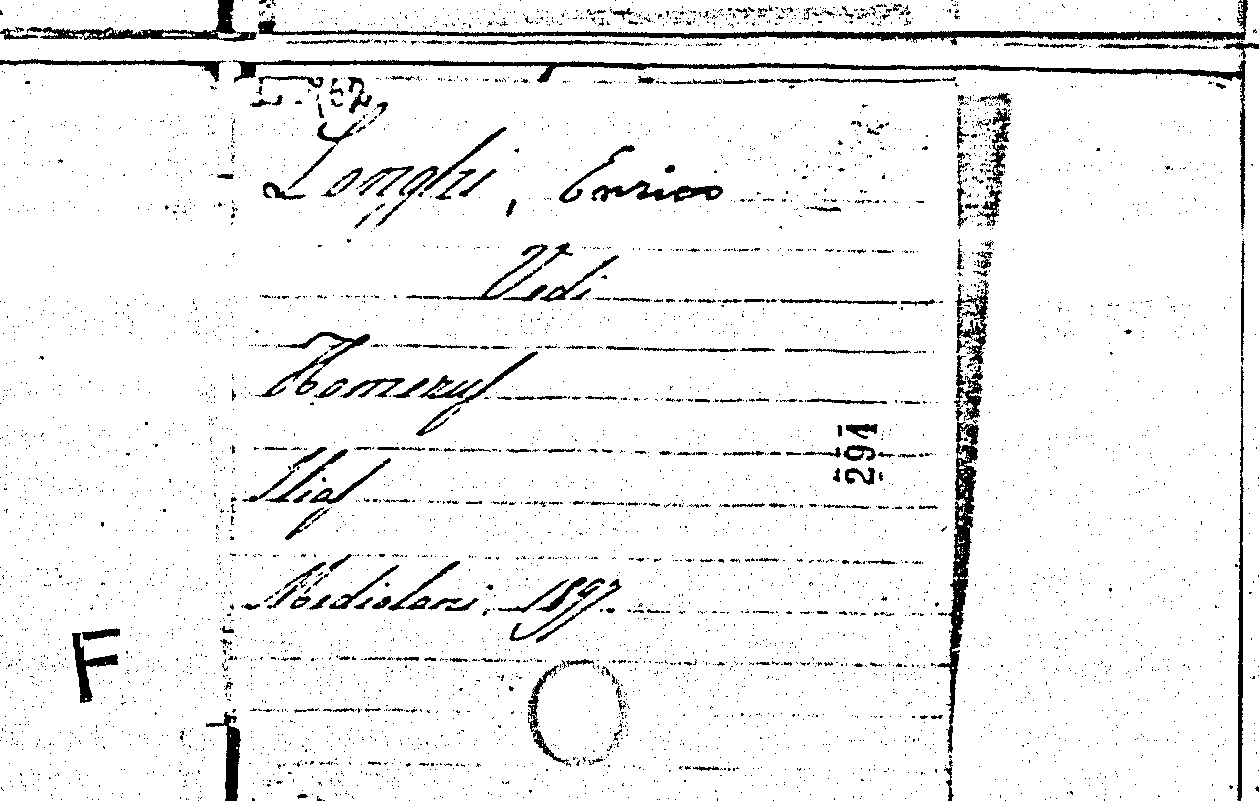 Longhi, Enrico
Vedi
Homerus
Ilias
Mediolani, 1897.
294
F